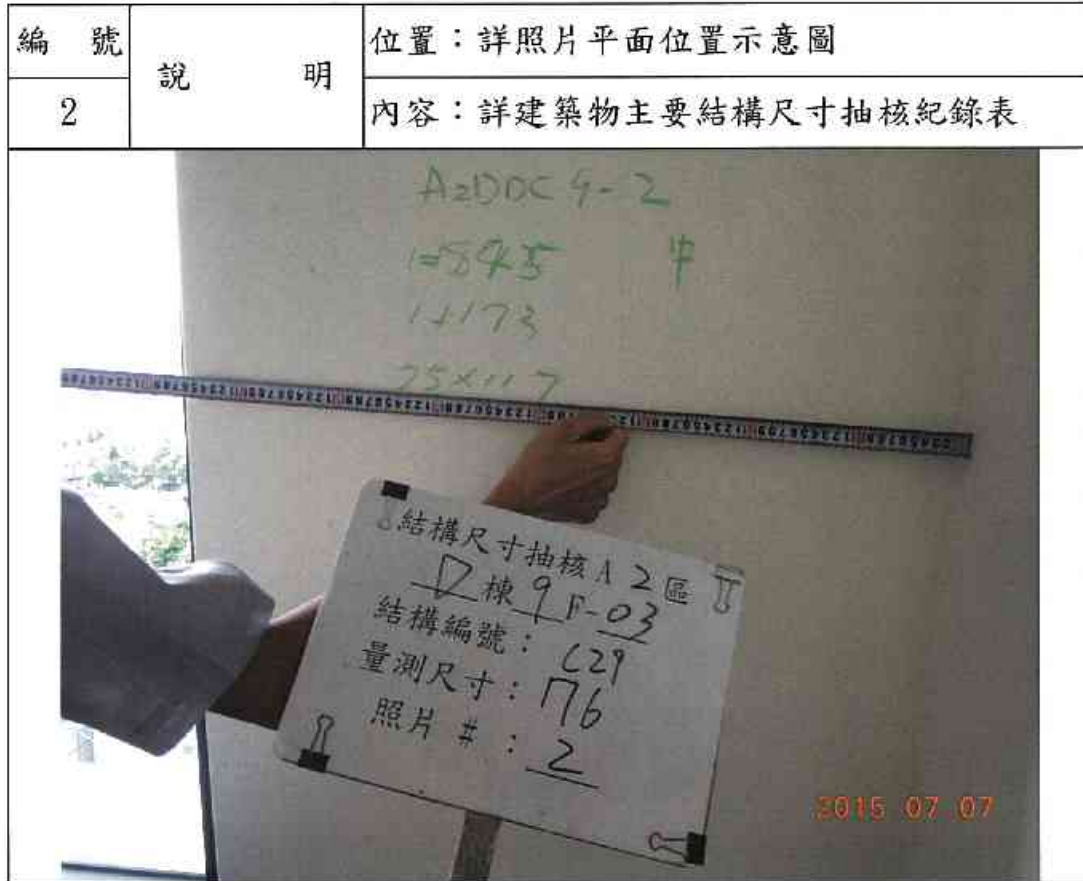 編 號
說 明
位置：詳照片平面位置示意圖
2
內容：詳建築物主要結構尺寸抽核紀錄表
A2DDC 9-2
中
結構尺寸抽核 A 2 區
D 棟 9 F-03
結構編號： C29
量測尺寸： 176
照片 #： 2
2015 07 07